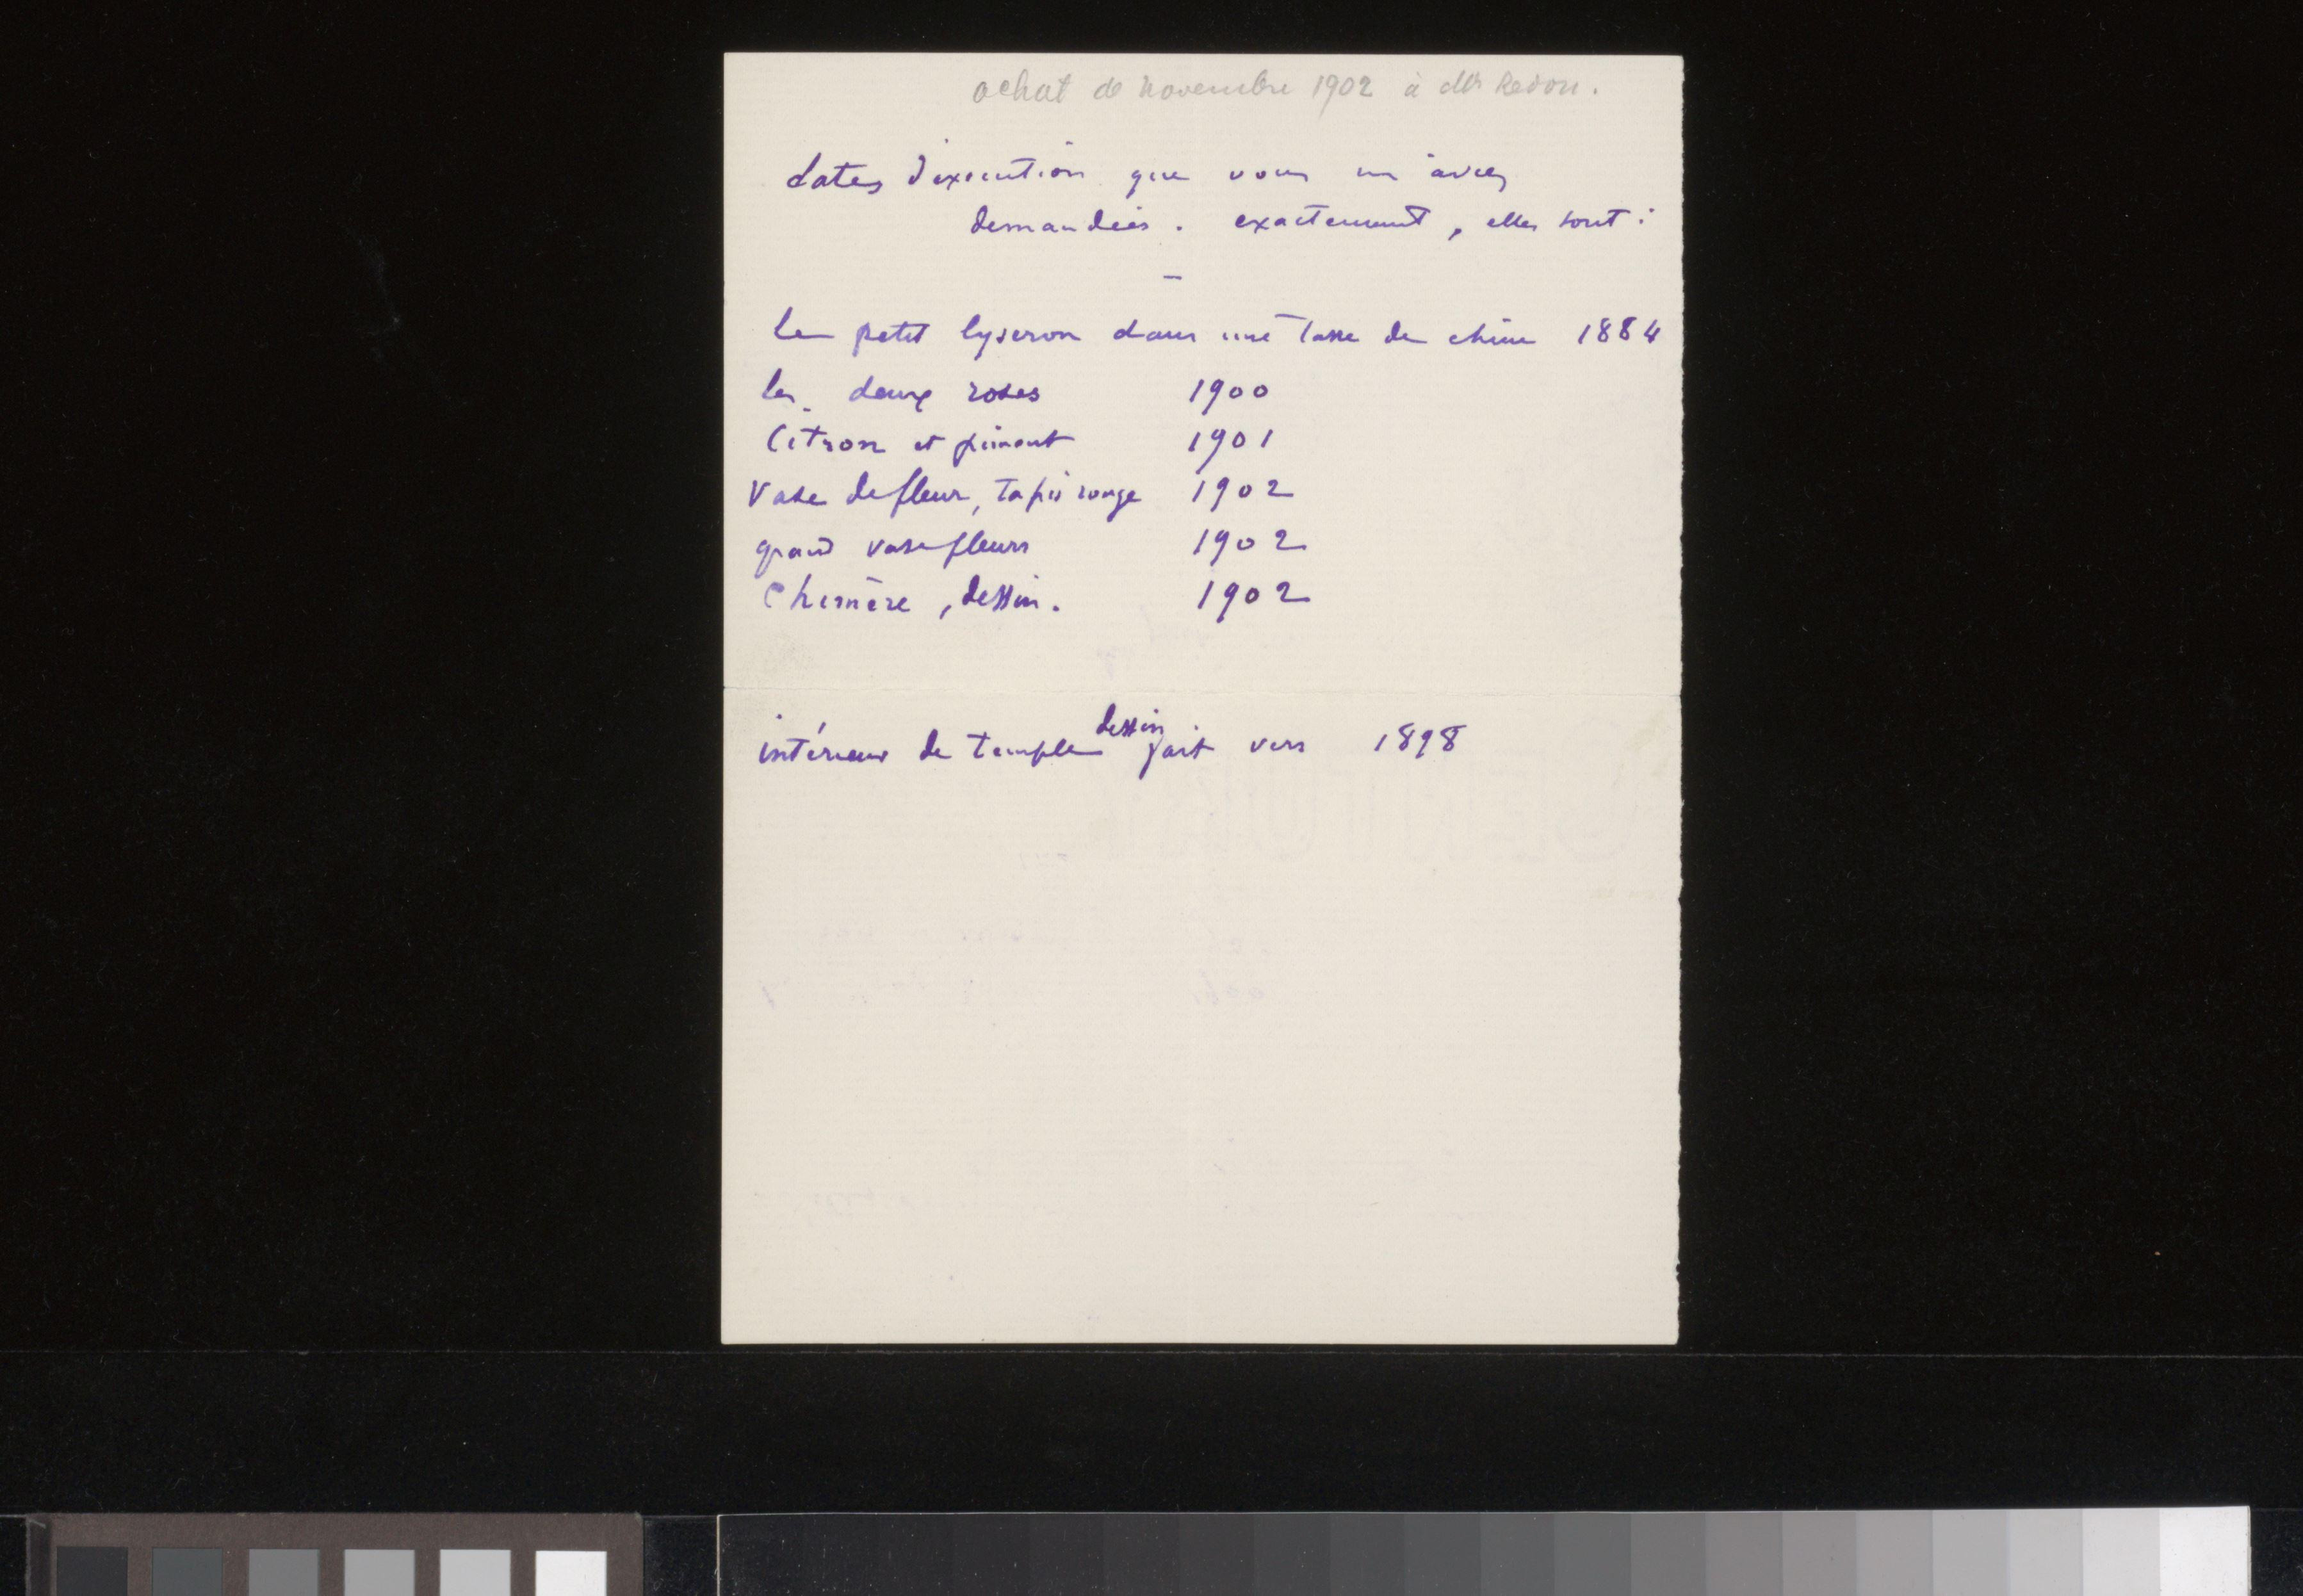 achat de novembre 1902 à Mr Redon.
dates d'exécution que vous m'avez
demandées. exactement, elles sont :
—
le petit lyseron dans une tasse de chine 1884
les deux roses 1900
Citron et piment 1901
Vase de fleur, tapis rouge 1902
grand vase fleurs 1902
Chimère, dessin. 1902
intérieur de temple dessin fait vers 1898